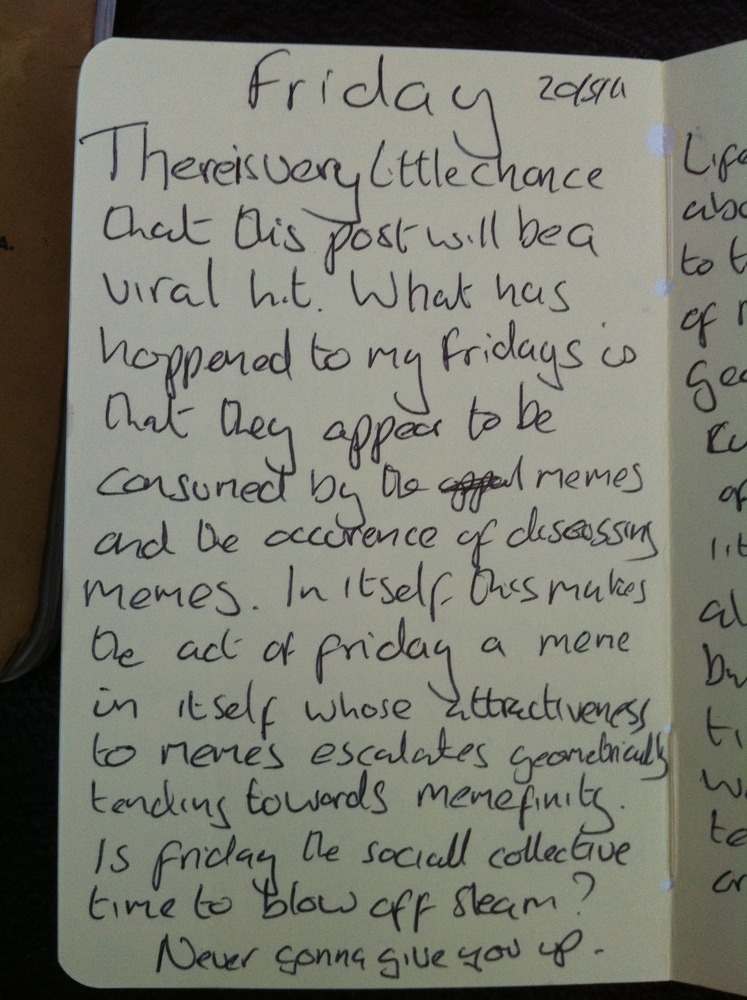 Friday 20/5/11
There is very little chance
that this post will be a
viral hit. What has
happened to my fridays is
that they appear to be
consumed by the memes
and the occurence of discussing
memes. In itself this makes
the act of friday a meme
in itself whose attractiveness
to memes escalates geometrically
tending towards memefinity.
Is friday the sociall collective
time to blow off steam?
Never gonna give you up.
to
of